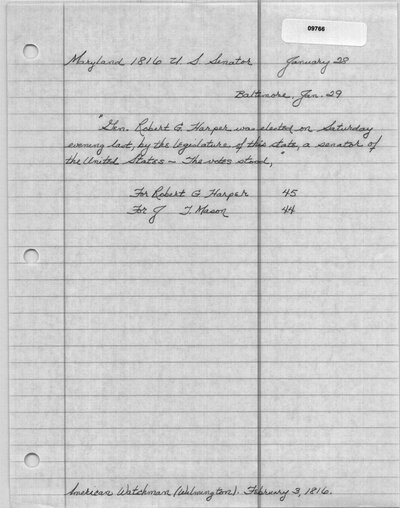 09766
Maryland 1816 U S Senator January 28
Baltimore, Jan. 29
"Gen. Robert G. Harper was elected on Saturday
evening last, by the legislature of this state, a senator of
the United States - The votes stood,"
For Robert G Harper 45
For J T. Mason 44
American Watchman (Wilmington). February 3, 1816.